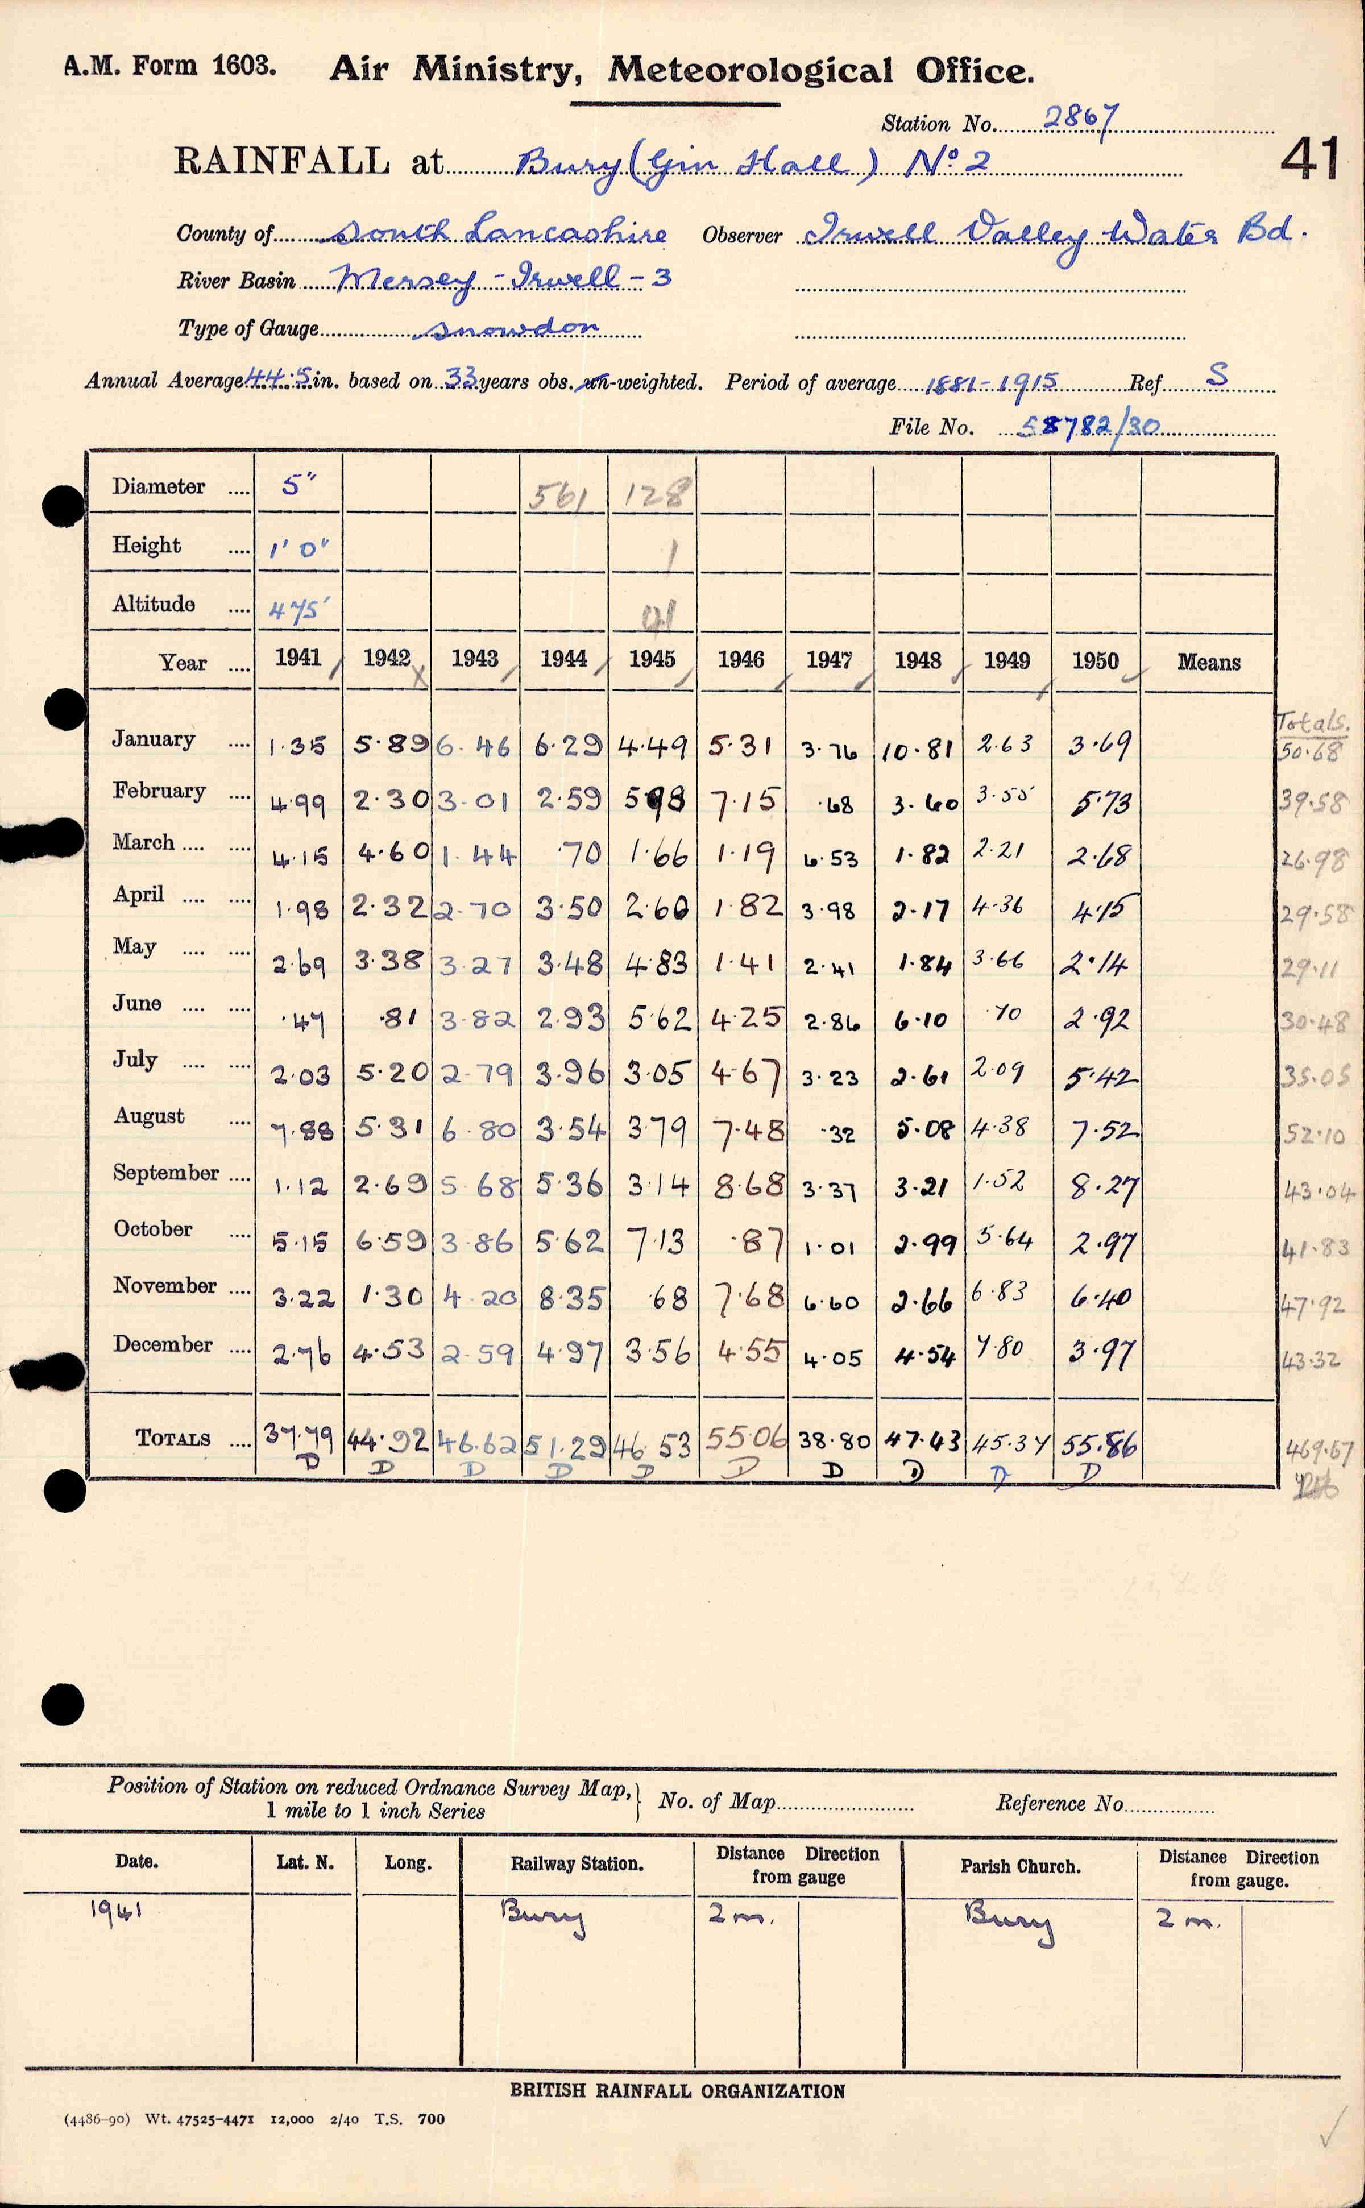 A.M. Form 1603. Air Ministry, Meteorological Office.
Station No. 2867
RAINFALL at Bury (Gin Hall) No. 2 41
County of South Lancashire Observer Irwell Valley Water Bd.
River Basin Mersey - Irwell - 3
Type of Gauge Snowdon
Annual Average 44.5 in. based on 33 years obs. un-weighted. Period of average 1881-1915 Ref S
File No. 58782/30
Diameter .... 5" 561 128
Height .... 1' 0" 1
Altitude .... 475'
Year .... 1941 1942 1943 1944 1945 1946 1947 1948 1949 1950 Means
Totals.
January .... 1.35 5.89 6.46 6.29 4.49 5.31 3.76 10.81 2.63 3.69 50.68
February .... 4.99 2.30 3.01 2.59 5.98 7.15 .68 3.60 3.55 5.73 39.58
March .... .... 4.15 4.60 1.44 .70 1.66 1.19 6.53 1.82 2.21 2.68 26.98
April .... .... 1.98 2.32 2.70 3.50 2.60 1.82 3.98 2.17 4.36 4.15 29.58
May .... .... 2.69 3.38 3.27 3.48 4.83 1.41 2.41 1.84 3.66 2.14 29.11
June .... .... .47 .81 3.82 2.93 5.62 4.25 2.86 6.10 .70 2.92 30.48
July .... .... 2.03 5.20 2.79 3.96 3.05 4.67 3.23 2.61 2.09 5.42 35.05
August .... 7.88 5.31 6.80 3.54 3.79 7.48 .32 5.08 4.38 7.52 52.10
September .... 1.12 2.69 5.68 5.36 3.14 8.68 3.37 3.21 1.52 8.27 43.04
October .... 5.15 6.59 3.86 5.62 7.13 .87 1.01 2.99 5.64 2.97 41.83
November .... 3.22 1.30 4.20 8.35 .68 7.68 6.60 2.66 6.83 6.40 47.92
December .... 2.76 4.53 2.59 4.97 3.56 4.55 4.05 4.54 7.80 3.97 43.32
TOTALS .... 37.79 44.92 46.62 51.29 46.53 55.06 38.80 47.43 45.37 55.86 469.67
D D D D D D D D D D
Position of Station on reduced Ordnance Survey Map, No. of Map Reference No
1 mile to 1 inch Series
Date. Lat. N. Long. Railway Station. Distance Direction from gauge Parish Church. Distance Direction from gauge.
1941 Bury 2 m. Bury 2 m.
BRITISH RAINFALL ORGANIZATION
(4486-90) Wt. 47525-4471 12,000 2/40 T.S. 700